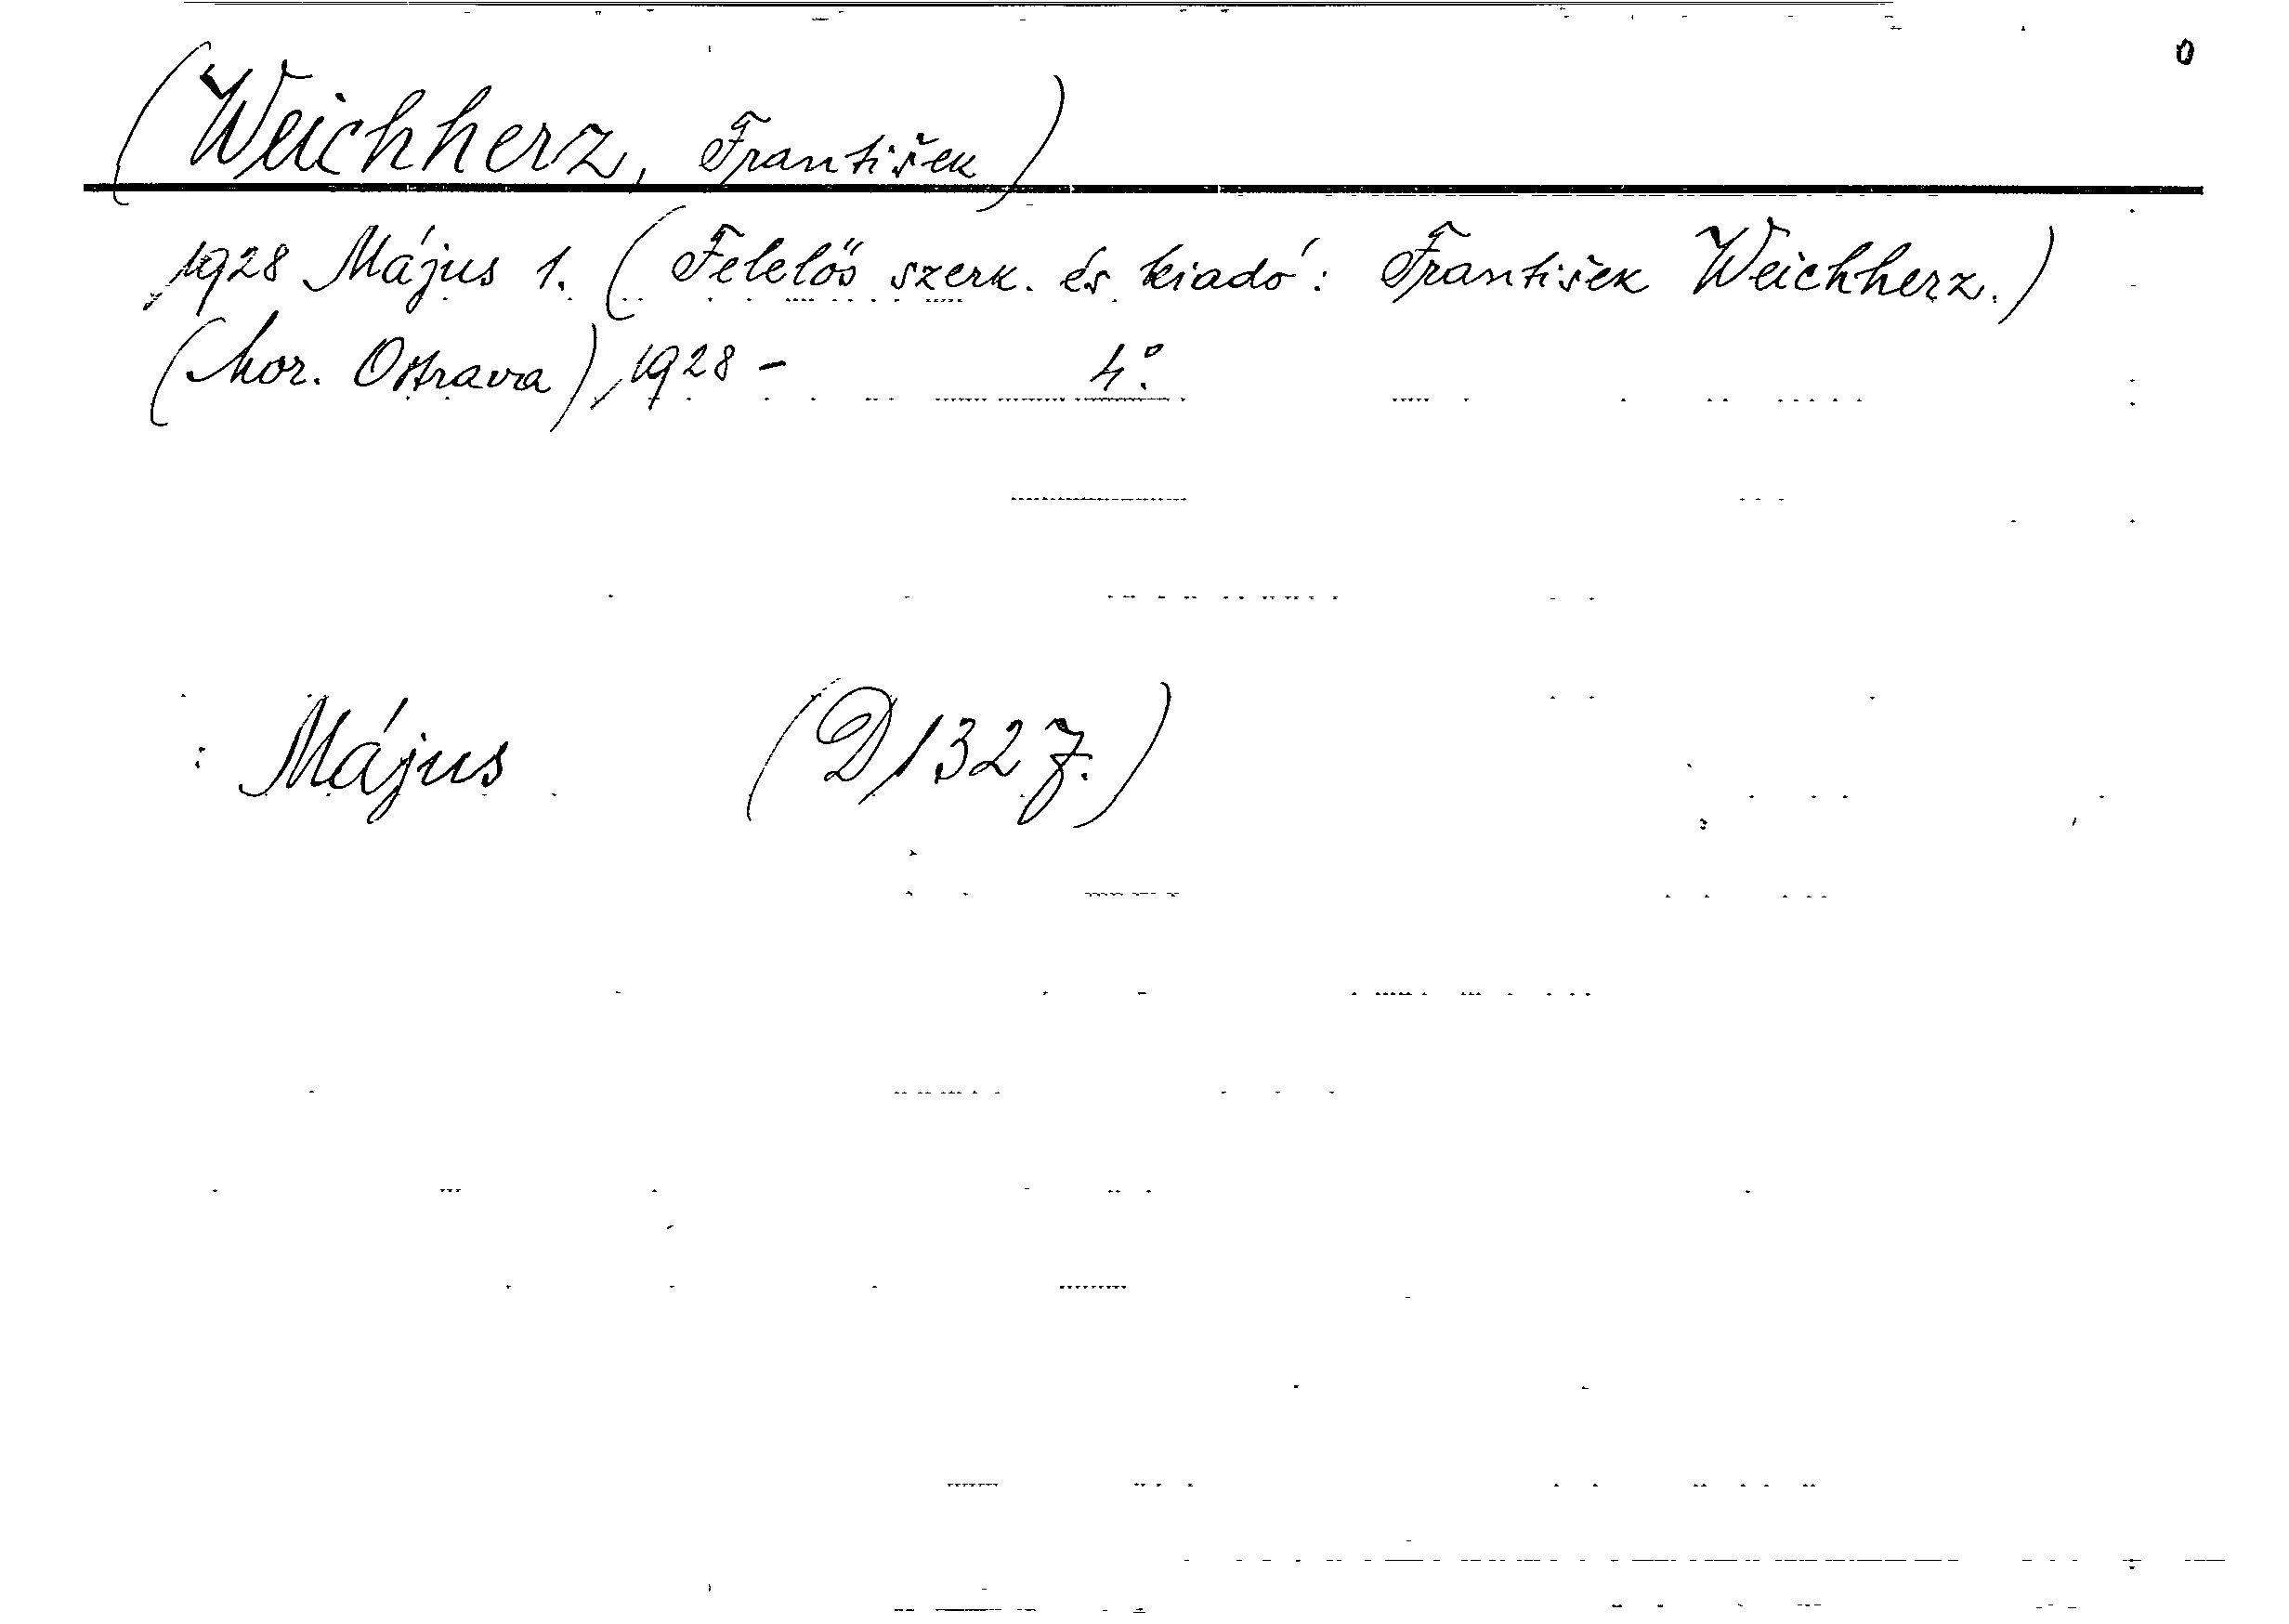 0
(Weichherz, František)
1928 Május 1. (Felelős szerk. és kiadó: František Weichherz.)
(Mor. Ostrava), 1928 - 4°.
Május (D 132 f.)